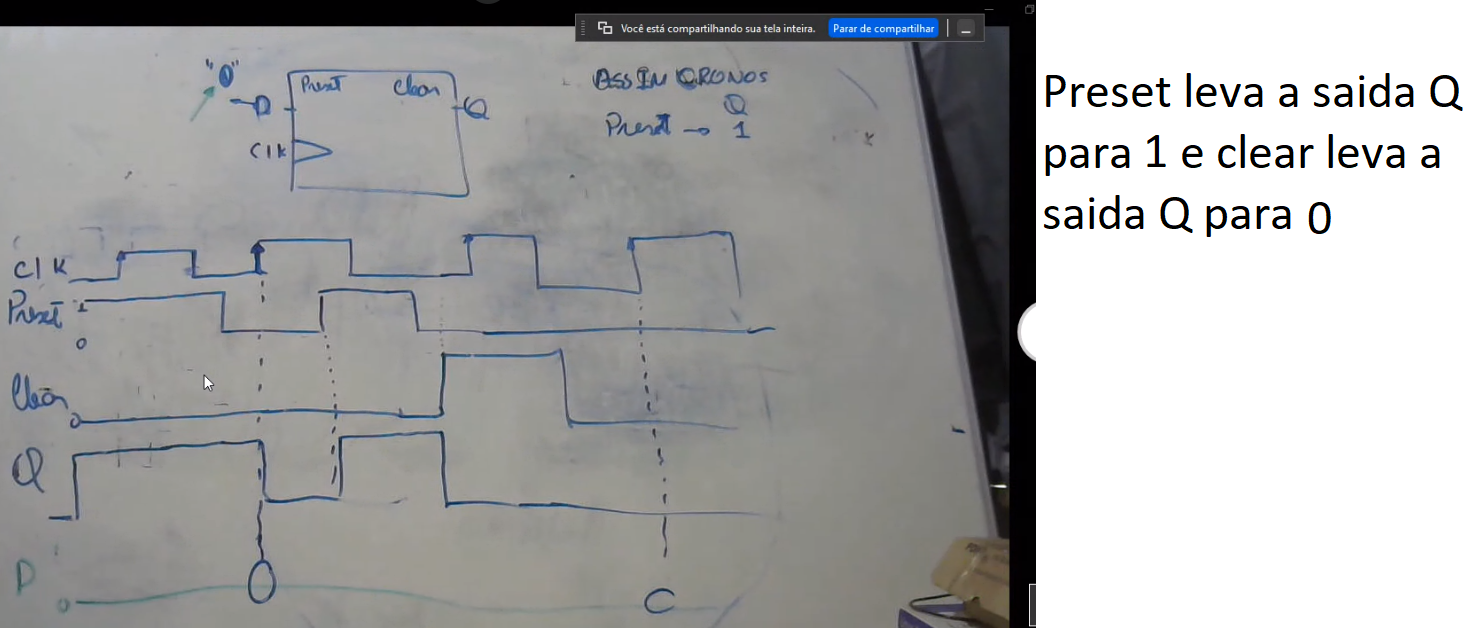 Você está compartilhando sua tela inteira. Parar de compartilhar
"0"
Preset Clear
D Q
Clk
ASSINCRONOS
Q
Preset → 1
Clk
Preset 1
0
Clear
0
Q
D
0
0
C
Preset leva a saida Q
para 1 e clear leva a
saida Q para 0